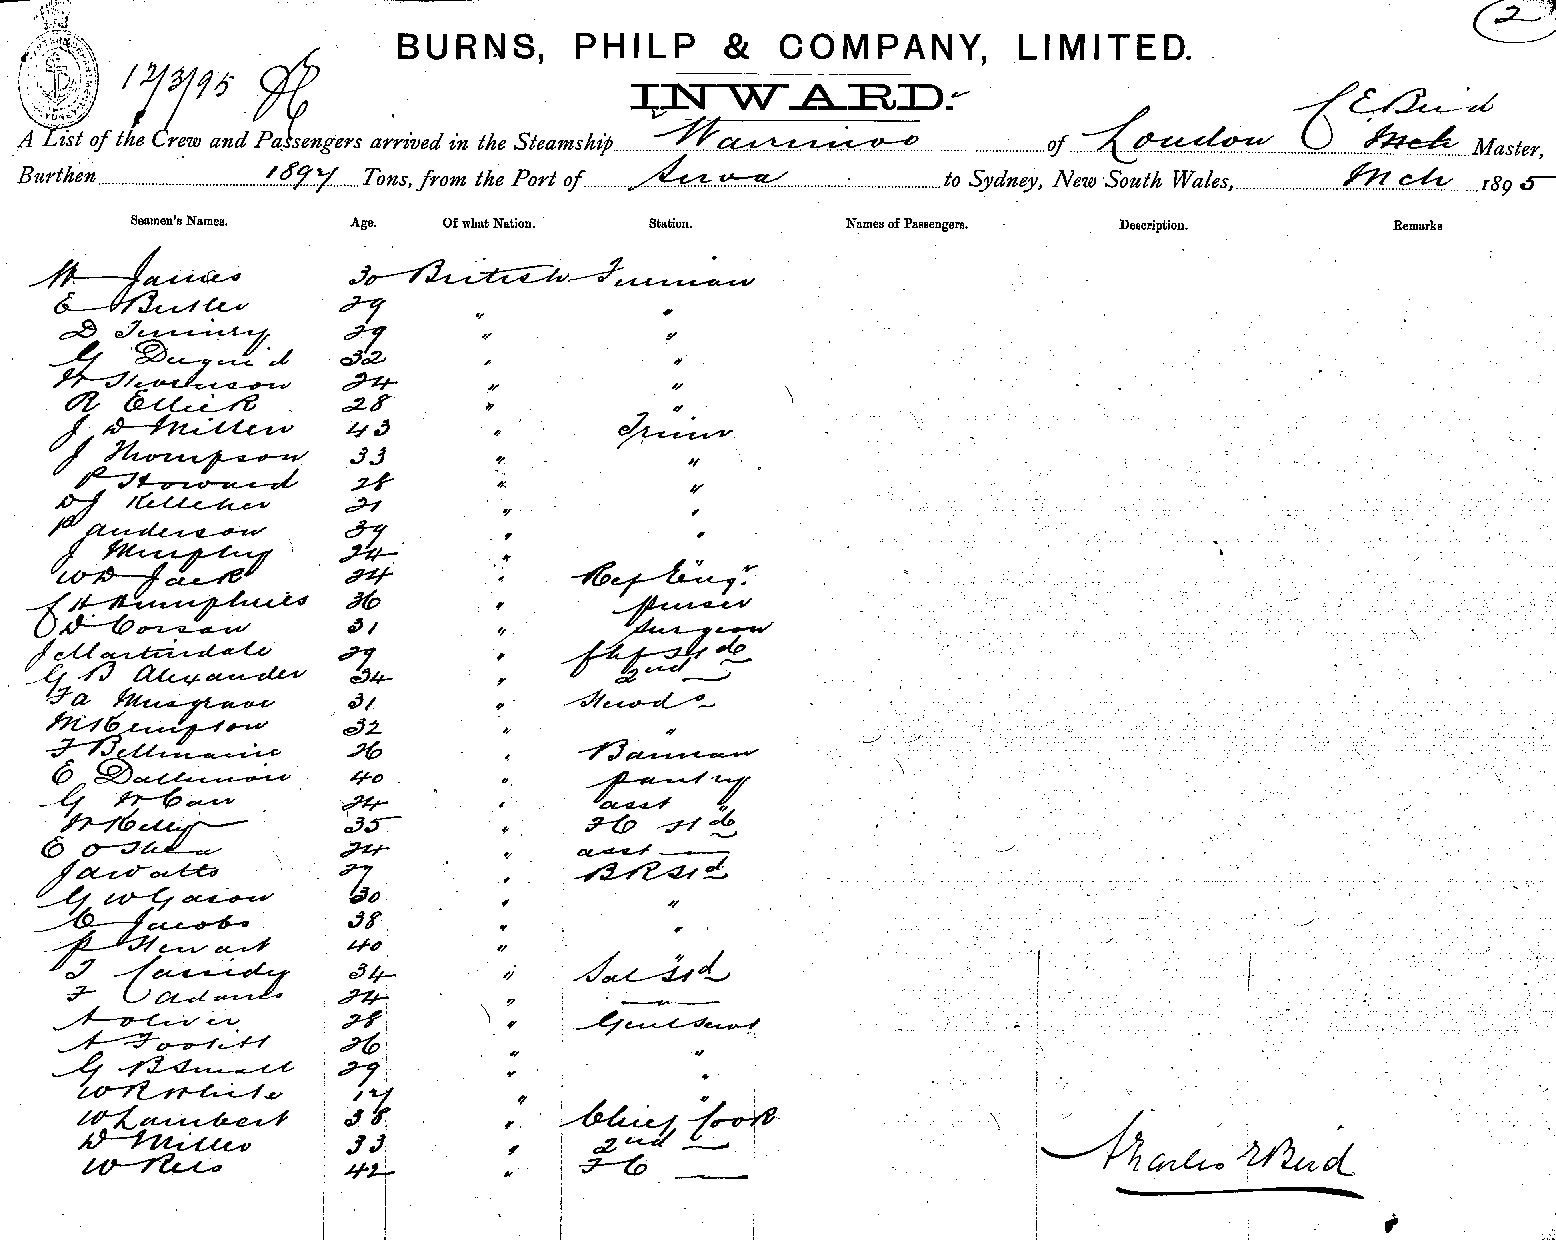 2
BURNS, PHILP & COMPANY, LIMITED.
12/3/95
INWARD.
C E Bird
A List of the Crew and Passengers arrived in the Steamship Warrimoo of London Mch Master,
Burthen 1897 Tons, from the Port of Suva to Sydney, New South Wales, Mch 1895
Seamen's Names. Age. Of what Nation. Station. Names of Passengers. Description. Remarks
W James 30 British Fireman
E Butler 29 " "
D 29 " "
G Duguid 32 " "
W Stevenson 24 " "
R Ellick 28 " "
J D Miller 43 " Trimr
J Thompson 33 " "
P Howard 28 " "
D J Kelleher 21 " "
P Anderson 39 " "
J Murphy 24 "
W D Jack 24 " Ref Engr.
C H Humphries 36 " Purser
D Corsan 31 " Surgeon
J Martindale 29 " Chf Std
G B Alexander 34 " 2nd —
F A Musgrave 31 " Stewds
M Kempton 32 " "
F Bellmaine 26 " Barman
E Dallimore 40 " Pantry
G W Carr 24 " asst "
W Kelly 35 " FC Std
E O Shea 24 " asst —
J A Watts 27 " B R Std
G W Gason 30 " "
C Jacobs 38 " "
P Stewart 40 " "
T Cassidy 34 " Sal Std
F Adams 24 " — " —
A Oliver 28 " Genl Servt
A 26 " "
G B Small 29 " "
W R White 17 " "
W Lambert 38 " Chief Cook
D Miller 33 " 2nd —
W Rees 42 " FC —
Charles E Bird